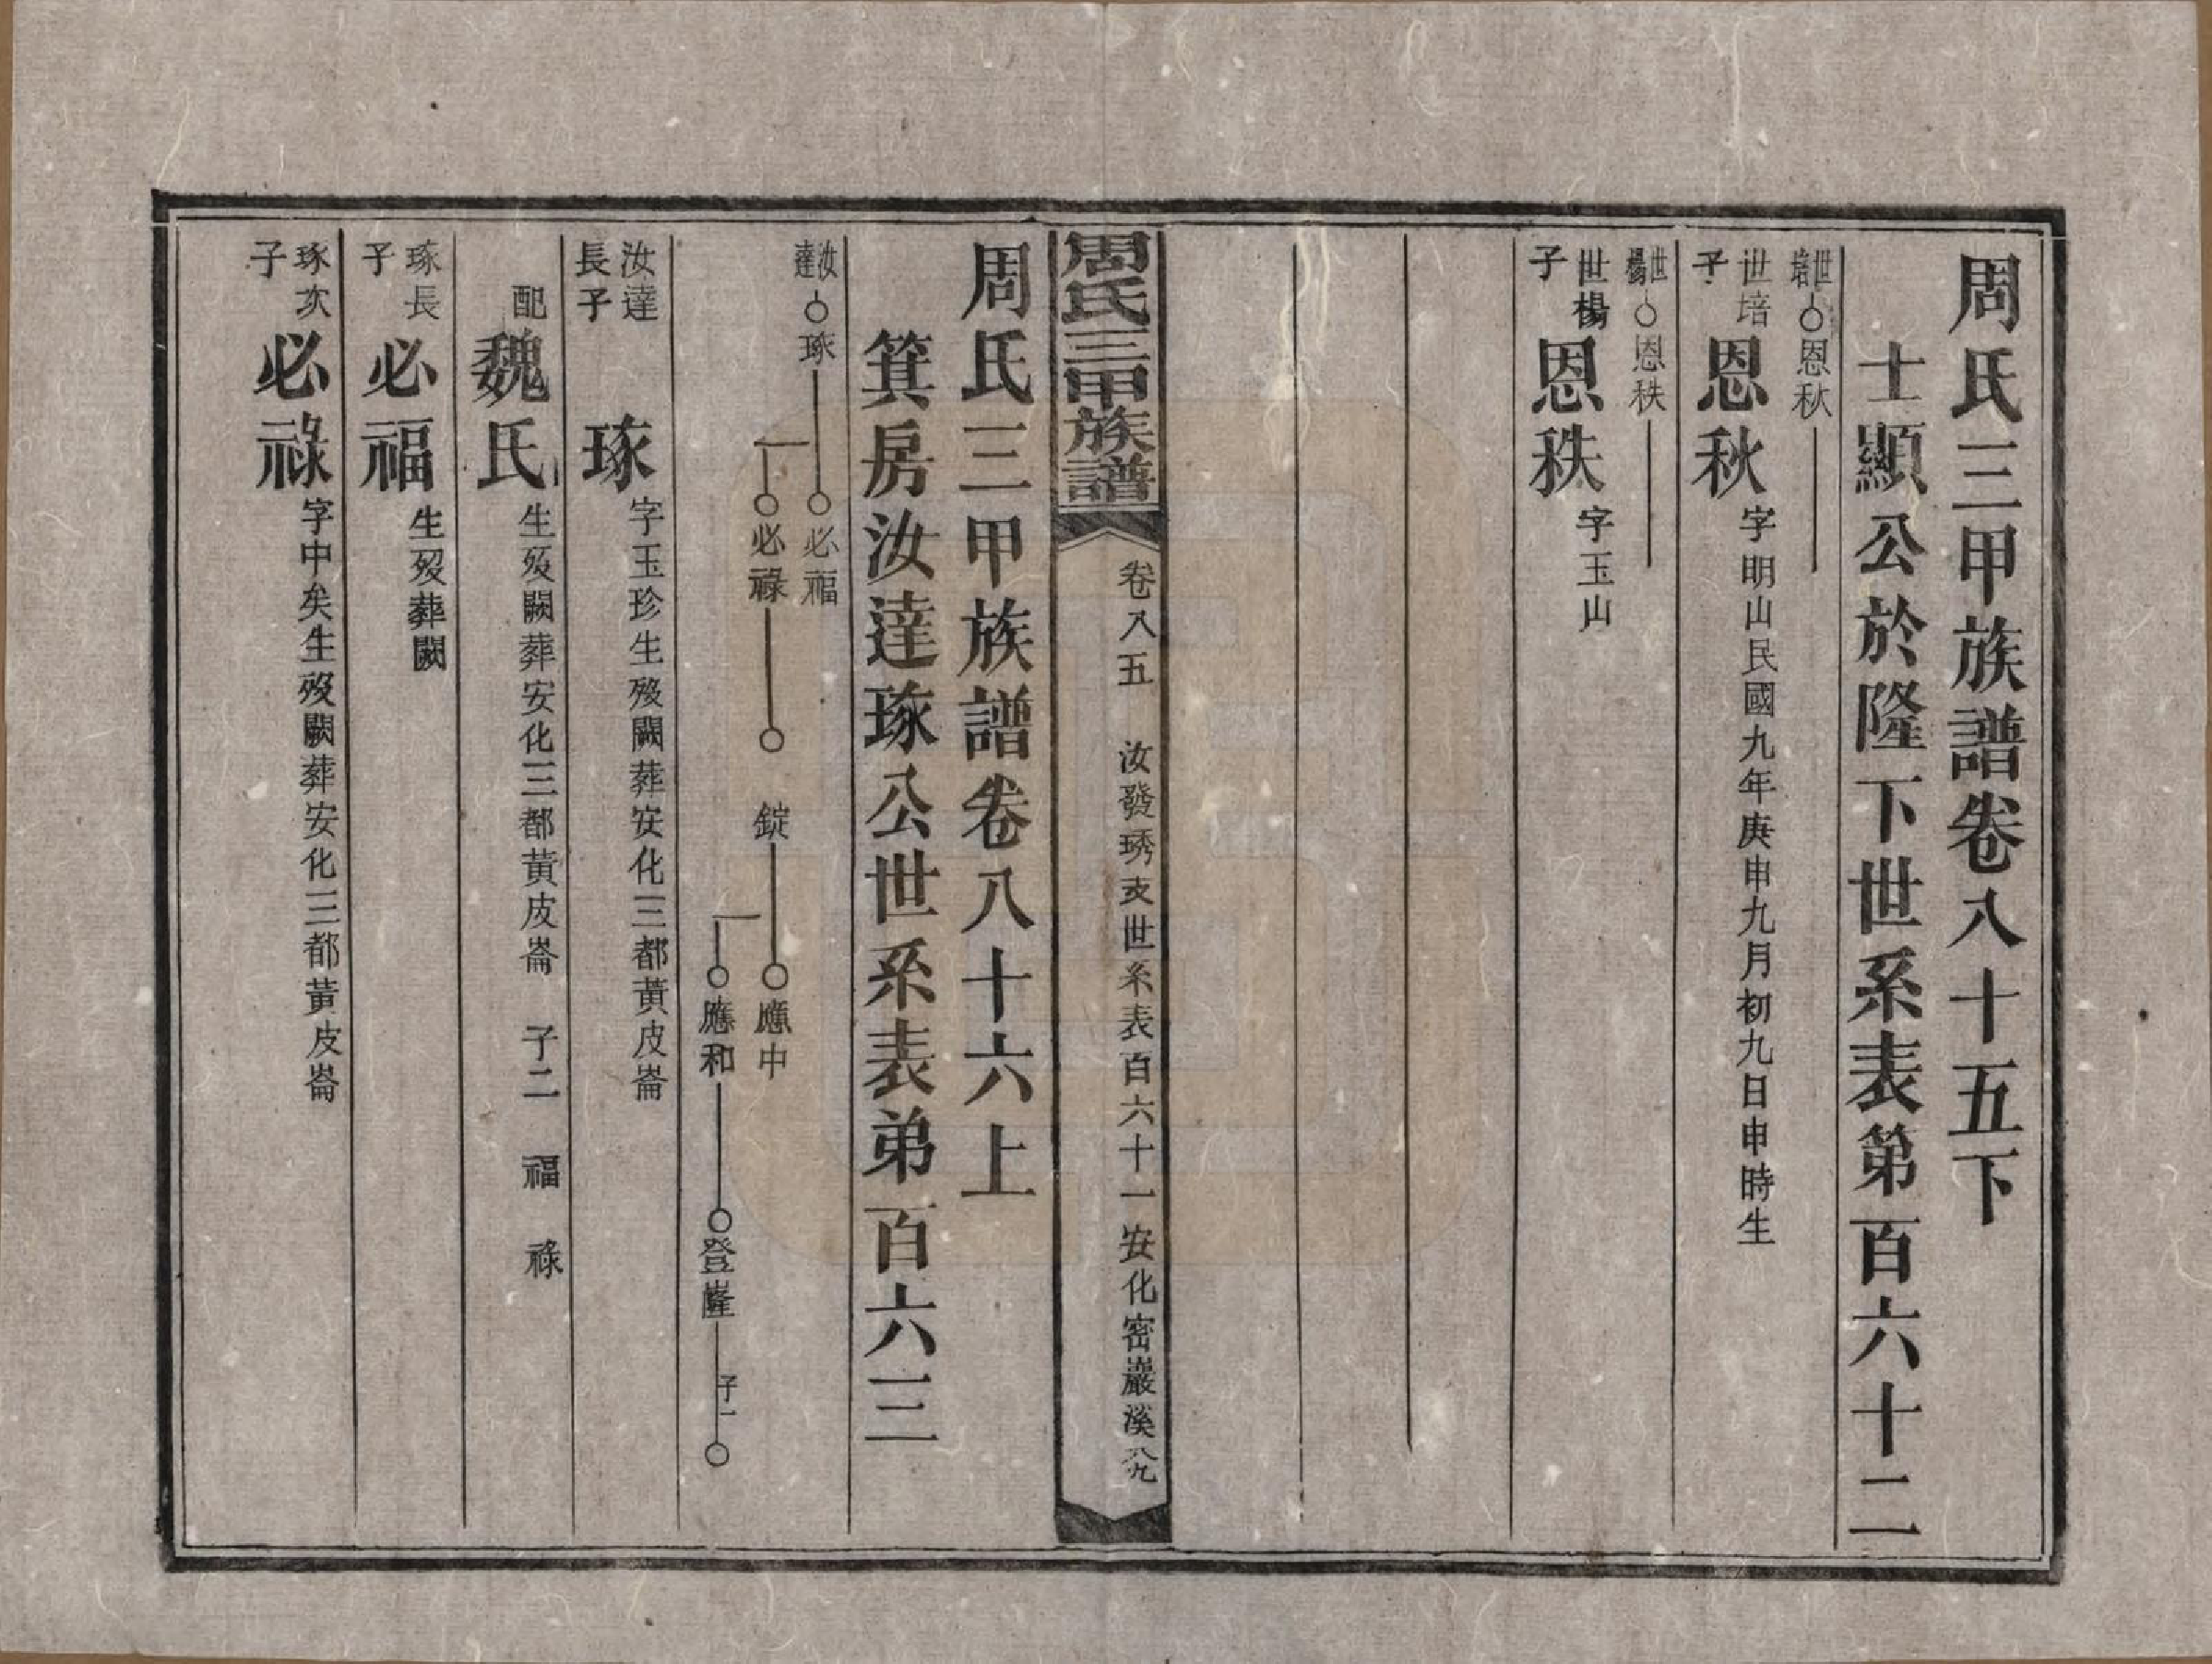 周氏三甲族譜卷八十五下
士顯公於隆下世系表第百六十二
世培○恩秋
世培子 恩秋 字明山民國九年庚申九月初九日申時生
世楊○恩秩
世楊子 恩秩 字玉山
周氏三甲族譜
卷八五 汝發琇支世系表百六十一安化密巖溪 八九
周氏三甲族譜卷八十六上
箕房汝達琢公世系表弟百六三
汝達○琢○必福
○必祿○錠○應中
○應和○登嶐子一○
汝達長子 琢 字玉珍生歿闕葬安化三都黃皮崙
配魏氏 生歿闕葬安化三都黃皮崙 子二 福 祿
琢長子 必福 生歿葬闕
琢次子 必祿 字中矣生歿闕葬安化三都黃皮崙